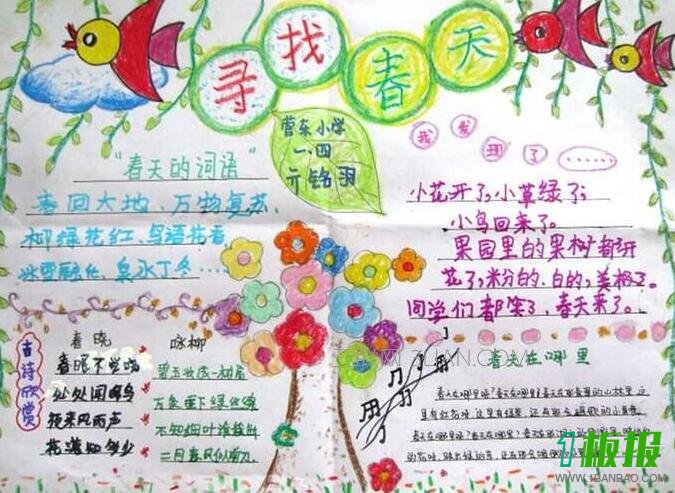 寻找春天
营东小学
一.四
亓铭羽
"春天的词语"
春回大地、万物复苏、
柳绿花红、鸟语花香
冰雪融化、泉水丁冬……
我发现了……
小花开了,小草绿了,
小鸟回来了。
果园里的果树都开
花了,粉的、白的,美极了。
同学们都笑了,春天来了。
古诗欣赏
春晓
春眠不觉晓
处处闻啼鸟
夜来风雨声
花落知多少
咏柳
碧玉妆成一树高
万条垂下绿丝绦
不知细叶谁裁出
二月春风似剪刀
春天在哪里
春天在哪里呀?春天在哪里?春天在那青翠的山林里,这
里有红花呀,这里有绿草,还有那会唱歌的小黄鹂
1板报
WWW.1BANBAO.COM